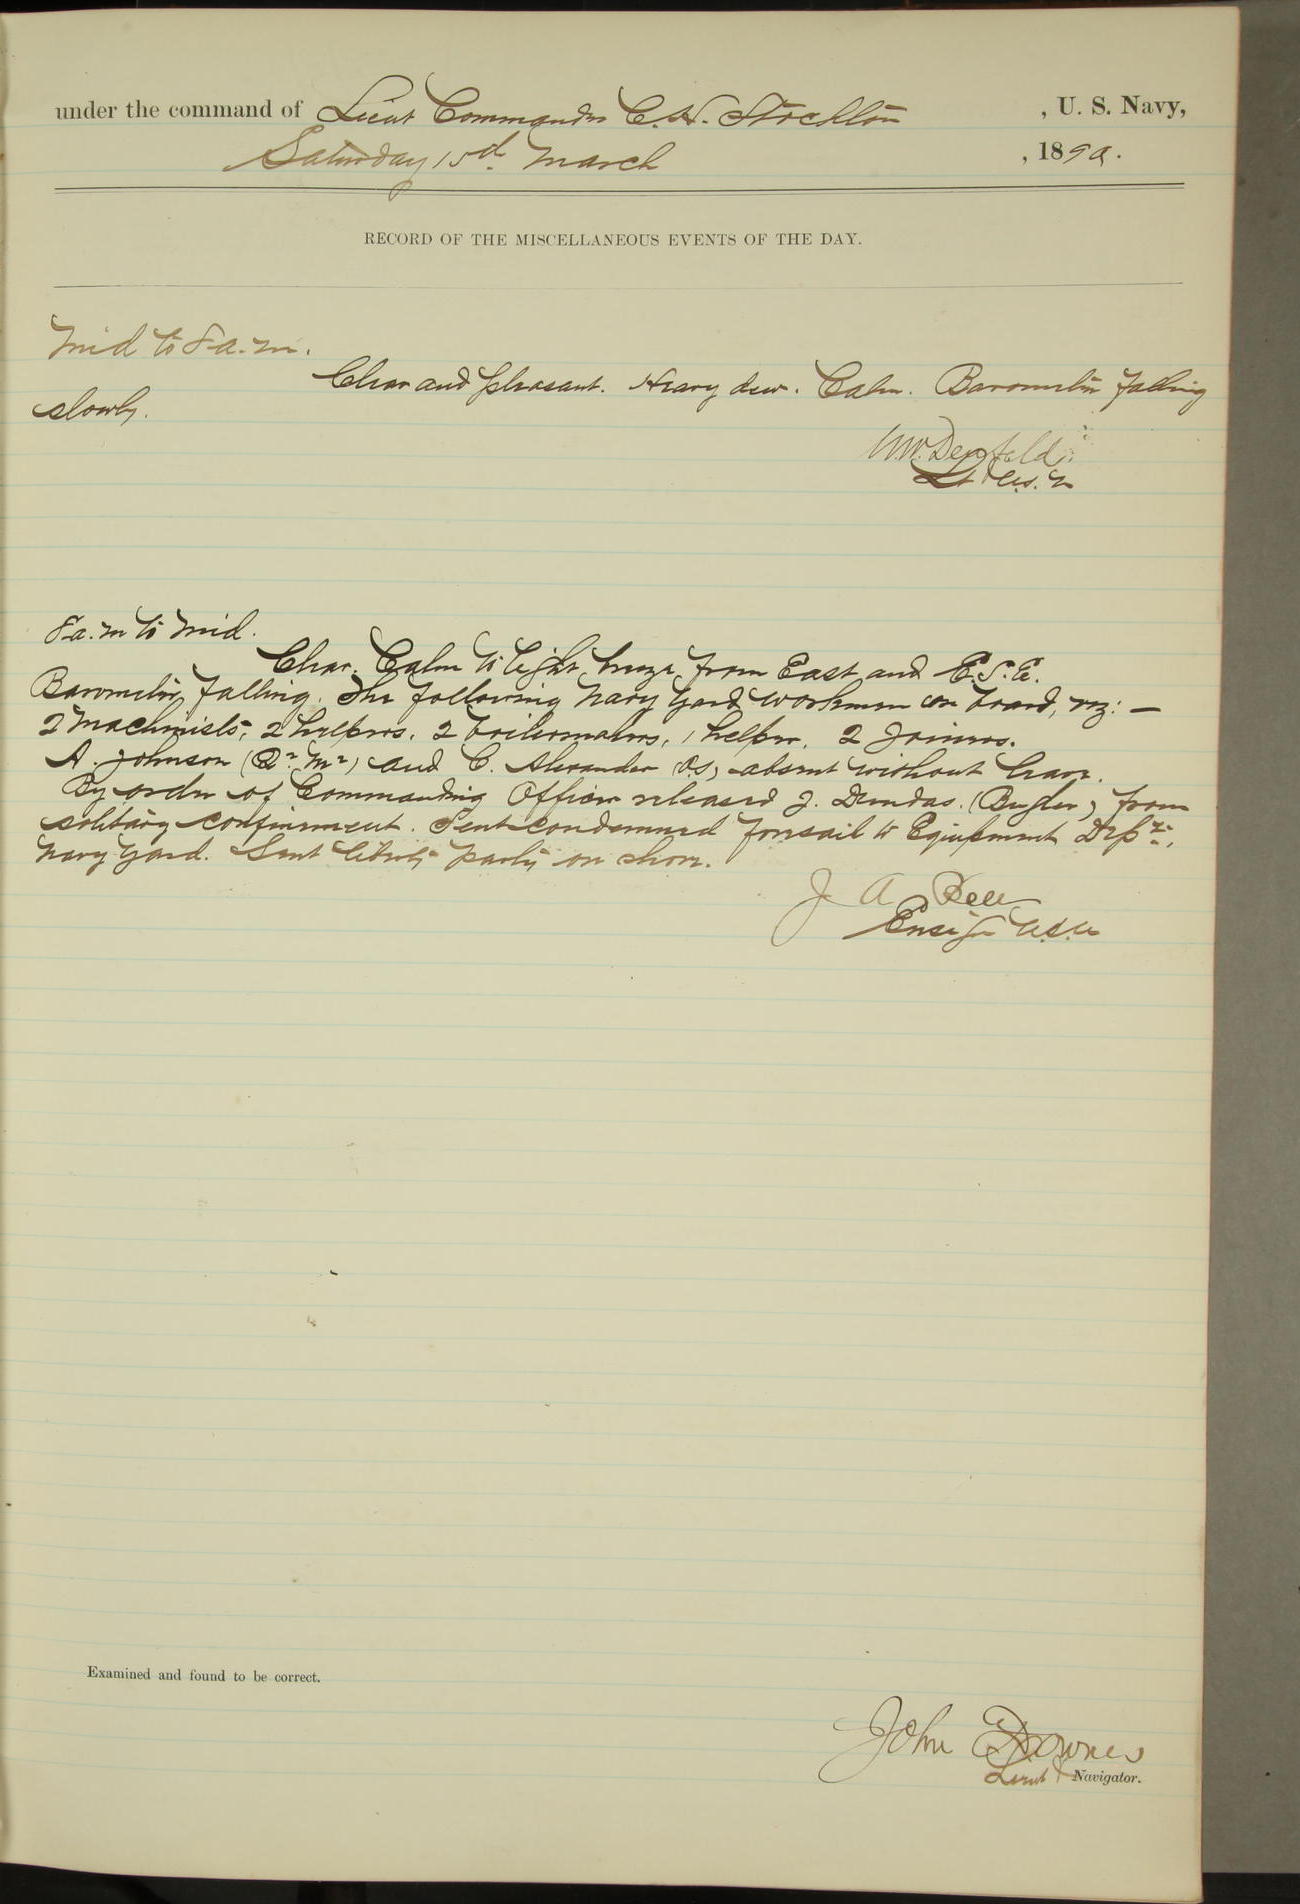 under the command of Lieut Commander C. H. Stockton, U. S. Navy,
Saturday 15th March, 1890.
RECORD OF THE MISCELLANEOUS EVENTS OF THE DAY.
Mid to 8 a.m.
Clear and pleasant. Heavy dew. Calm. Barometer falling
slowly.
Denfeld
Lt U.S.N
8 a.m to Mid.
Clear. Calm to light breeze from East and E.S.E.
Barometer falling. The following Navy Yard workmen on board, viz: —
2 Machinists, 2 helpers. 2 boilermakers, 1 helper. 2 Joiners.
A. Johnson (Qr. Mr) and C. Alexander (O.S) absent without leave.
By order of Commanding Officer released J. Dundas. (Bugler) from
solitary confinement. Sent condemned foresail to Equipment Dept.,
Navy Yard. Sent liberty party on shore.
J A Bell
Ensign USN
Examined and found to be correct.
John Downes
Lieut & Navigator.